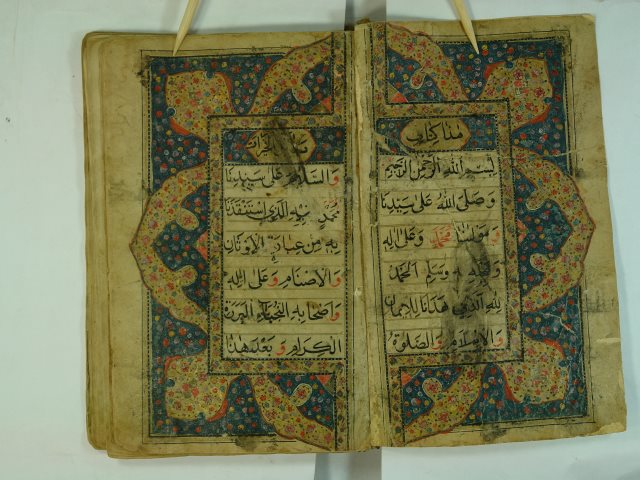 هذا كتاب
بسم الله الرحمن الرحيم
وصلى الله على سيدنا
ومولنا محمد وعلى اله
وصحبه وسلم الحمد
لله الذي هدانا للايمان
والاسلام والصلوة
دلائل الخيرات
والسلام على سيدنا
محمد نبيه الذي استنقذنا
به من عبادة الاوثان
والاصنام وعلى اله
واصحابه النجباء البررة
الكرام وبعد هذا